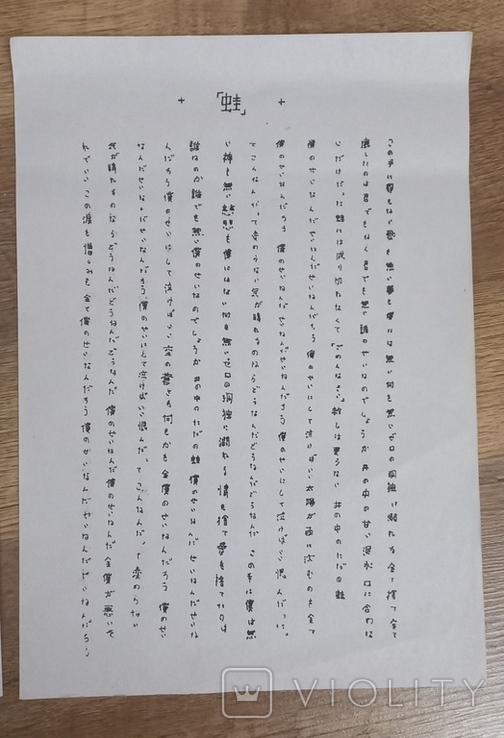 「蛙」
この手に夢もなく愛も無い夢も僕には無い何も無いゼロの孤独に溺れる全て捨て全て
壊したのは君でもなく君でも無い誰のせいなのでしょうか井の中の甘い泥水口に含めな
いだけだ。ただ蛙には成り切れなくて「ごめんなさい」救しは要らない 井の中のただの蛙
僕のせいなんだせいなんだせいなんだろう 僕のせいにして泣けばいい太陽が西に沈むのも全て
僕のせいなんだろう 僕のせいなんだせいなんだせいなんだろう 僕のせいにして泣けばいい恨んだって。
てこんなんだ。って変わらない気が晴れるのならどうなんだどうなんだどうなんだ この手に僕は無
い神も無い慈悲も僕にはない何も無いゼロの孤独に溺れる 情を捨て夢を捨てたのは
誰なのか誰でも無い僕のせいなのでしょうか 井の中のただの蛙 僕のせいなんだ せいなんだせいな
んだろう 僕のせいにして泣けばいい 空の蒼さも何もかも全僕のせいなんだろう 僕のせい
なんだせいなんだせいなんだろう 僕のせいにして泣けばいい恨んだ。てこんなんだ。って変わらない
気が晴れるのならどうなんだどうなんだ 僕のせいなんだ僕のせいなんだ 全僕が悪いで
れでいい この涙も憎しみも全て僕のせいなんだろう 僕のせいなんだせいなんだせいなんだろう
VIOLITY